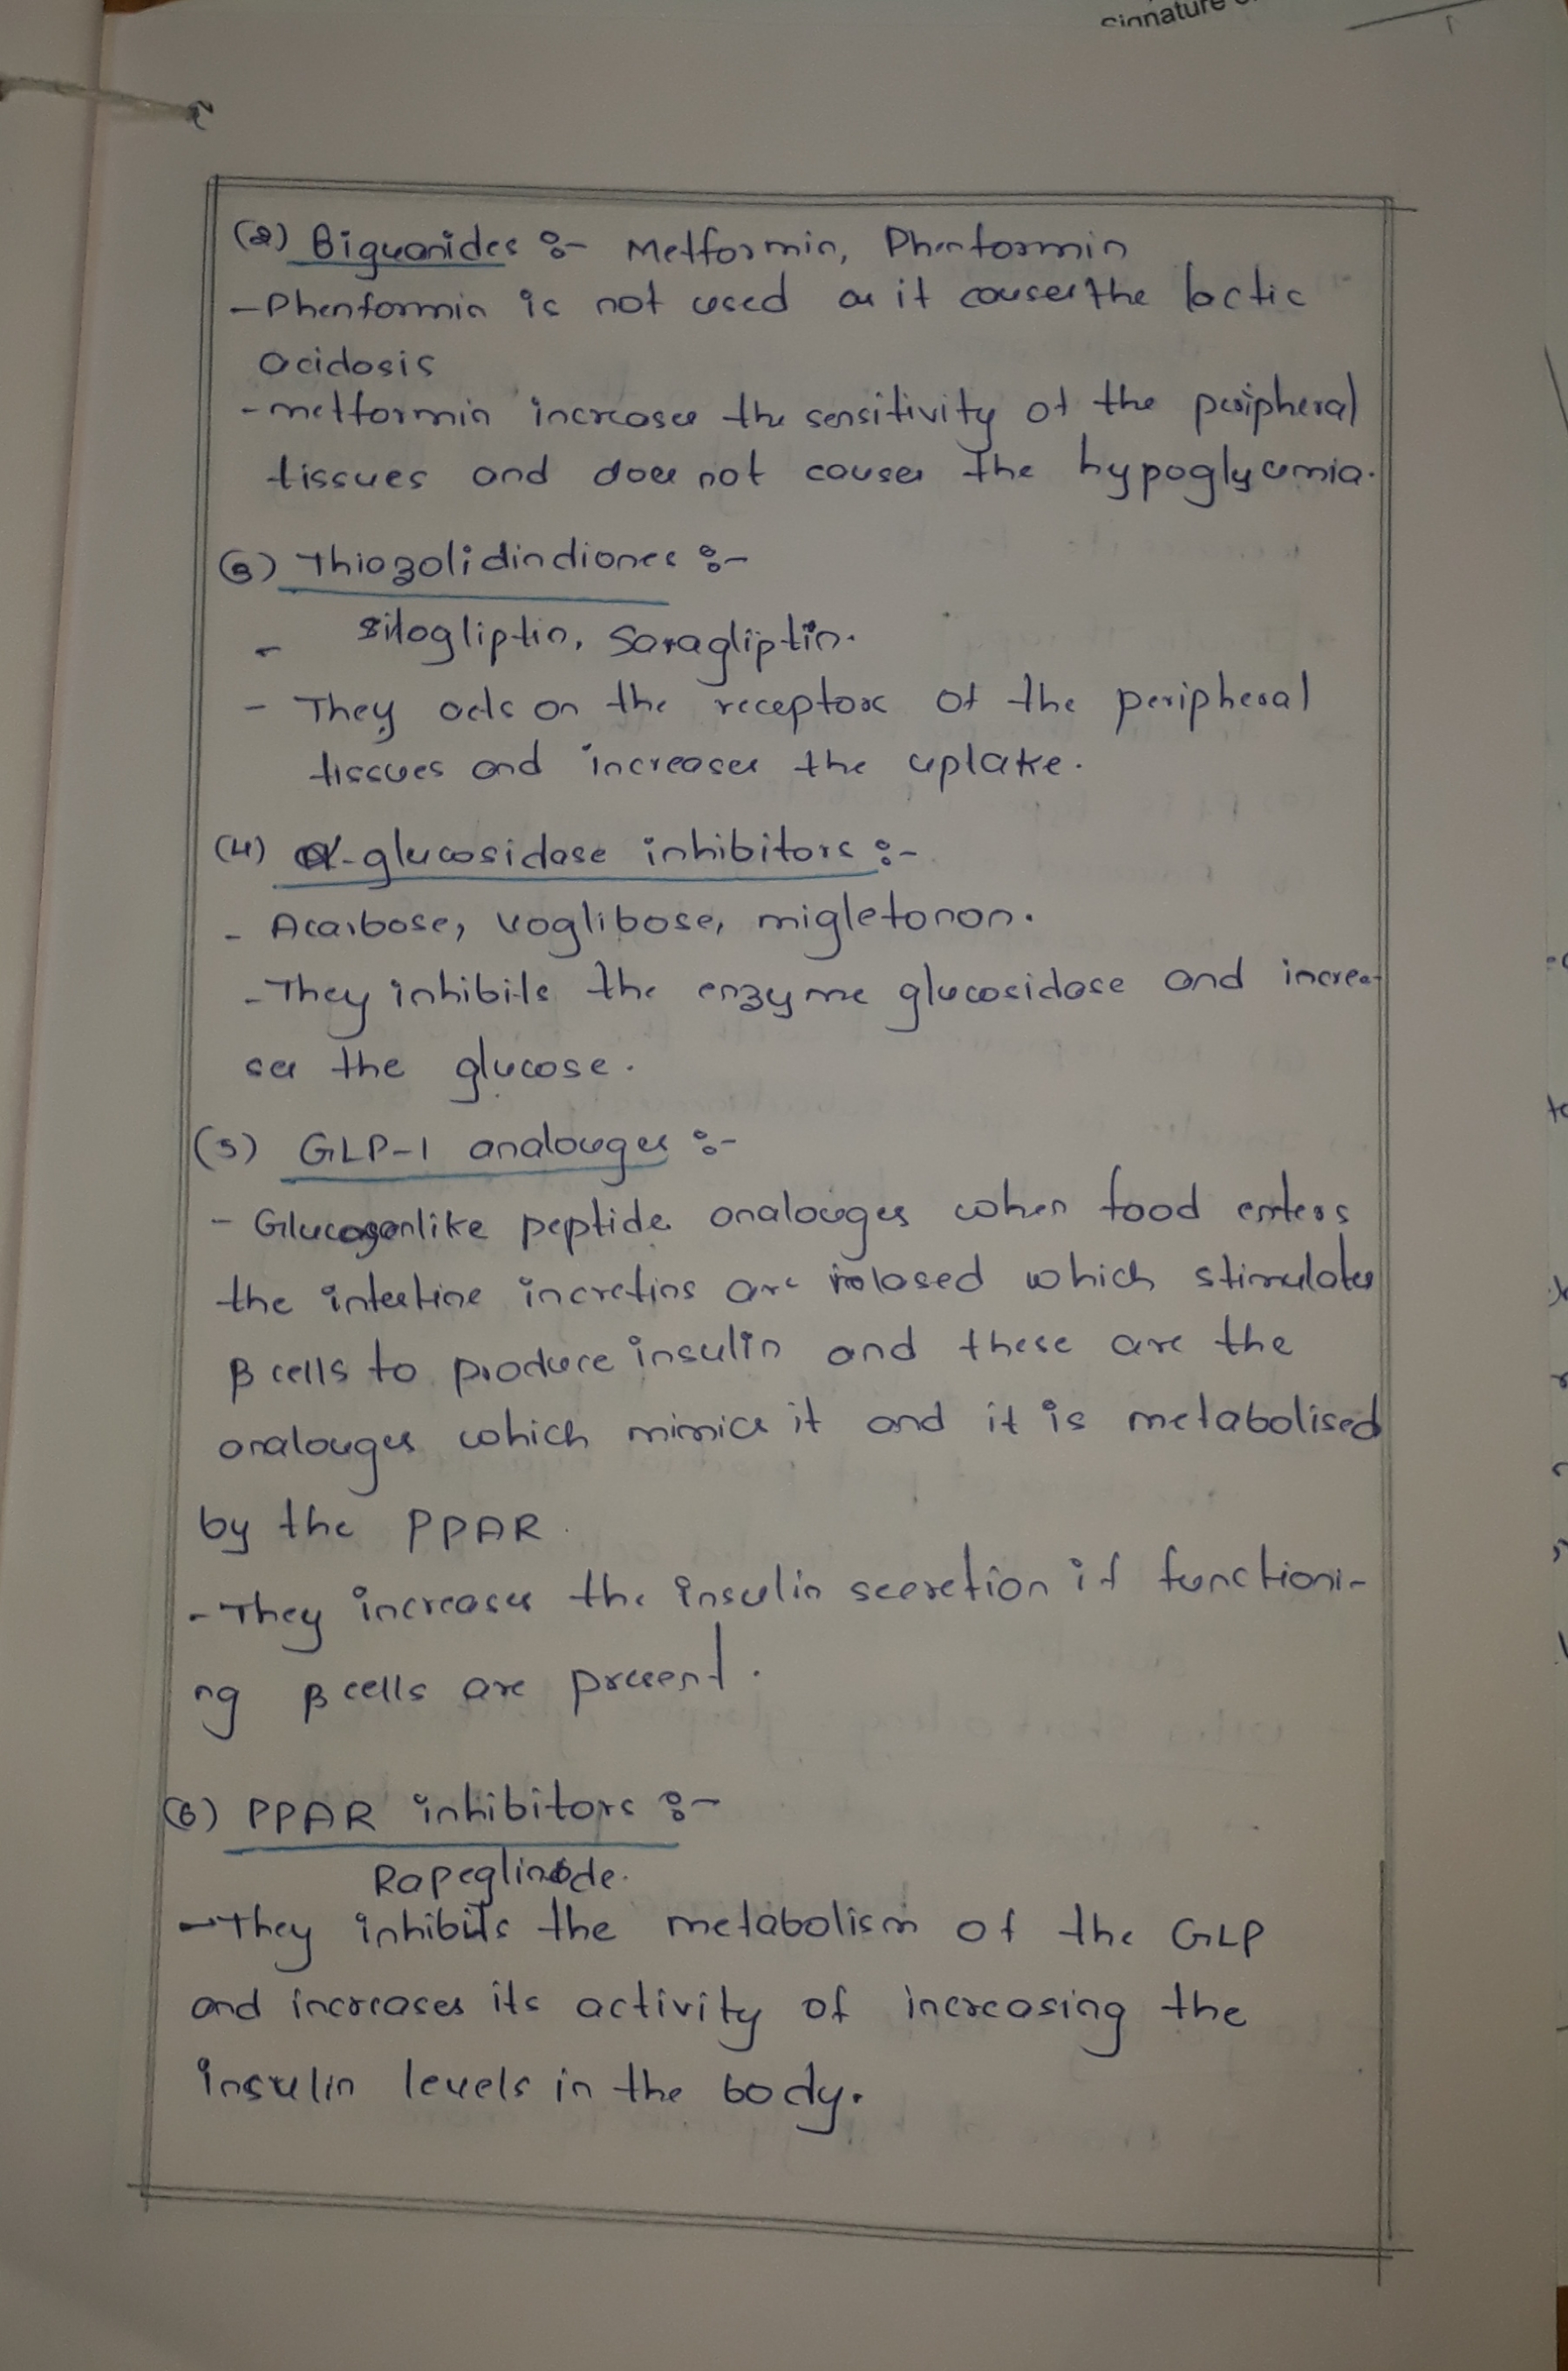 Signature
(2) Biguanides :- Metformin, Phenformin
- Phenformin is not used as it causes the lactic
acidosis
- metformin increases the sensitivity of the peripheral
tissues and does not causes the hypoglycemia.
(3) Thiozolidindiones :-
- Sitogliptin, Saxagliptin.
- They acts on the receptors of the peripheral
tissues and increases the uptake.
(4) α-glucosidase inhibitors :-
- Acarbose, voglibose, migletonon.
- They inhibits the enzyme glucosidase and increa-
ses the glucose.
(5) GLP-1 analouges :-
- Glucagonlike peptide analouges when food enters
the intestine incretins are relased which stimulates
β cells to produce insulin and these are the
analouges which mimics it and it is metabolised
by the PPAR.
- They increases the insulin secretion if functioni-
ng β cells are present.
(6) PPAR inhibitors :-
Rapeglinide.
- They inhibits the metabolism of the GLP
and increases its activity of increasing the
insulin levels in the body.